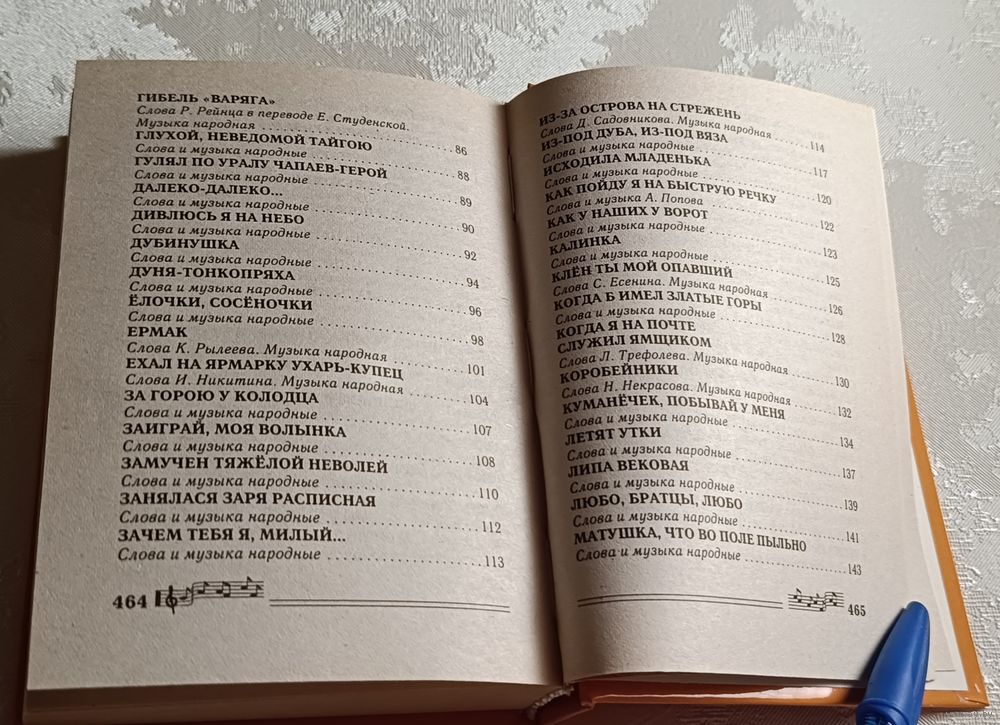 ГИБЕЛЬ «ВАРЯГА»
Слова Р. Рейнца в переводе Е. Студенской.
Музыка народная 86
ГЛУХОЙ, НЕВЕДОМОЙ ТАЙГОЮ
Слова и музыка народные 88
ГУЛЯЛ ПО УРАЛУ ЧАПАЕВ-ГЕРОЙ
Слова и музыка народные 89
ДАЛЕКО-ДАЛЕКО...
Слова и музыка народные 90
ДИВЛЮСЬ Я НА НЕБО
Слова и музыка народные 92
ДУБИНУШКА
Слова и музыка народные 94
ДУНЯ-ТОНКОПРЯХА
Слова и музыка народные 96
ЁЛОЧКИ, СОСЁНОЧКИ
Слова и музыка народные 98
ЕРМАК
Слова К. Рылеева. Музыка народная 101
ЕХАЛ НА ЯРМАРКУ УХАРЬ-КУПЕЦ
Слова И. Никитина. Музыка народная 104
ЗА ГОРОЮ У КОЛОДЦА
Слова и музыка народные 107
ЗАИГРАЙ, МОЯ ВОЛЫНКА
Слова и музыка народные 108
ЗАМУЧЕН ТЯЖЁЛОЙ НЕВОЛЕЙ
Слова и музыка народные 110
ЗАНЯЛАСЯ ЗАРЯ РАСПИСНАЯ
Слова и музыка народные 112
ЗАЧЕМ ТЕБЯ Я, МИЛЫЙ...
Слова и музыка народные 113
464
ИЗ-ЗА ОСТРОВА НА СТРЕЖЕНЬ
Слова Д. Садовникова. Музыка народная 114
ИЗ-ПОД ДУБА, ИЗ-ПОД ВЯЗА
Слова и музыка народные 117
ИСХОДИЛА МЛАДЕНЬКА
Слова и музыка народные 120
КАК ПОЙДУ Я НА БЫСТРУЮ РЕЧКУ
Слова и музыка А. Попова 122
КАК У НАШИХ У ВОРОТ
Слова и музыка народные 123
КАЛИНКА
Слова и музыка народные 125
КЛЁН ТЫ МОЙ ОПАВШИЙ
Слова С. Есенина. Музыка народная 126
КОГДА Б ИМЕЛ ЗЛАТЫЕ ГОРЫ
Слова и музыка народные 128
КОГДА Я НА ПОЧТЕ
СЛУЖИЛ ЯМЩИКОМ
Слова Л. Трефолева. Музыка народная 130
КОРОБЕЙНИКИ
Слова Н. Некрасова. Музыка народная 132
КУМАНЁЧЕК, ПОБЫВАЙ У МЕНЯ
Слова и музыка народные 134
ЛЕТЯТ УТКИ
Слова и музыка народные 137
ЛИПА ВЕКОВАЯ
Слова и музыка народные 139
ЛЮБО, БРАТЦЫ, ЛЮБО
Слова и музыка народные 141
МАТУШКА, ЧТО ВО ПОЛЕ ПЫЛЬНО
Слова и музыка народные 143
465